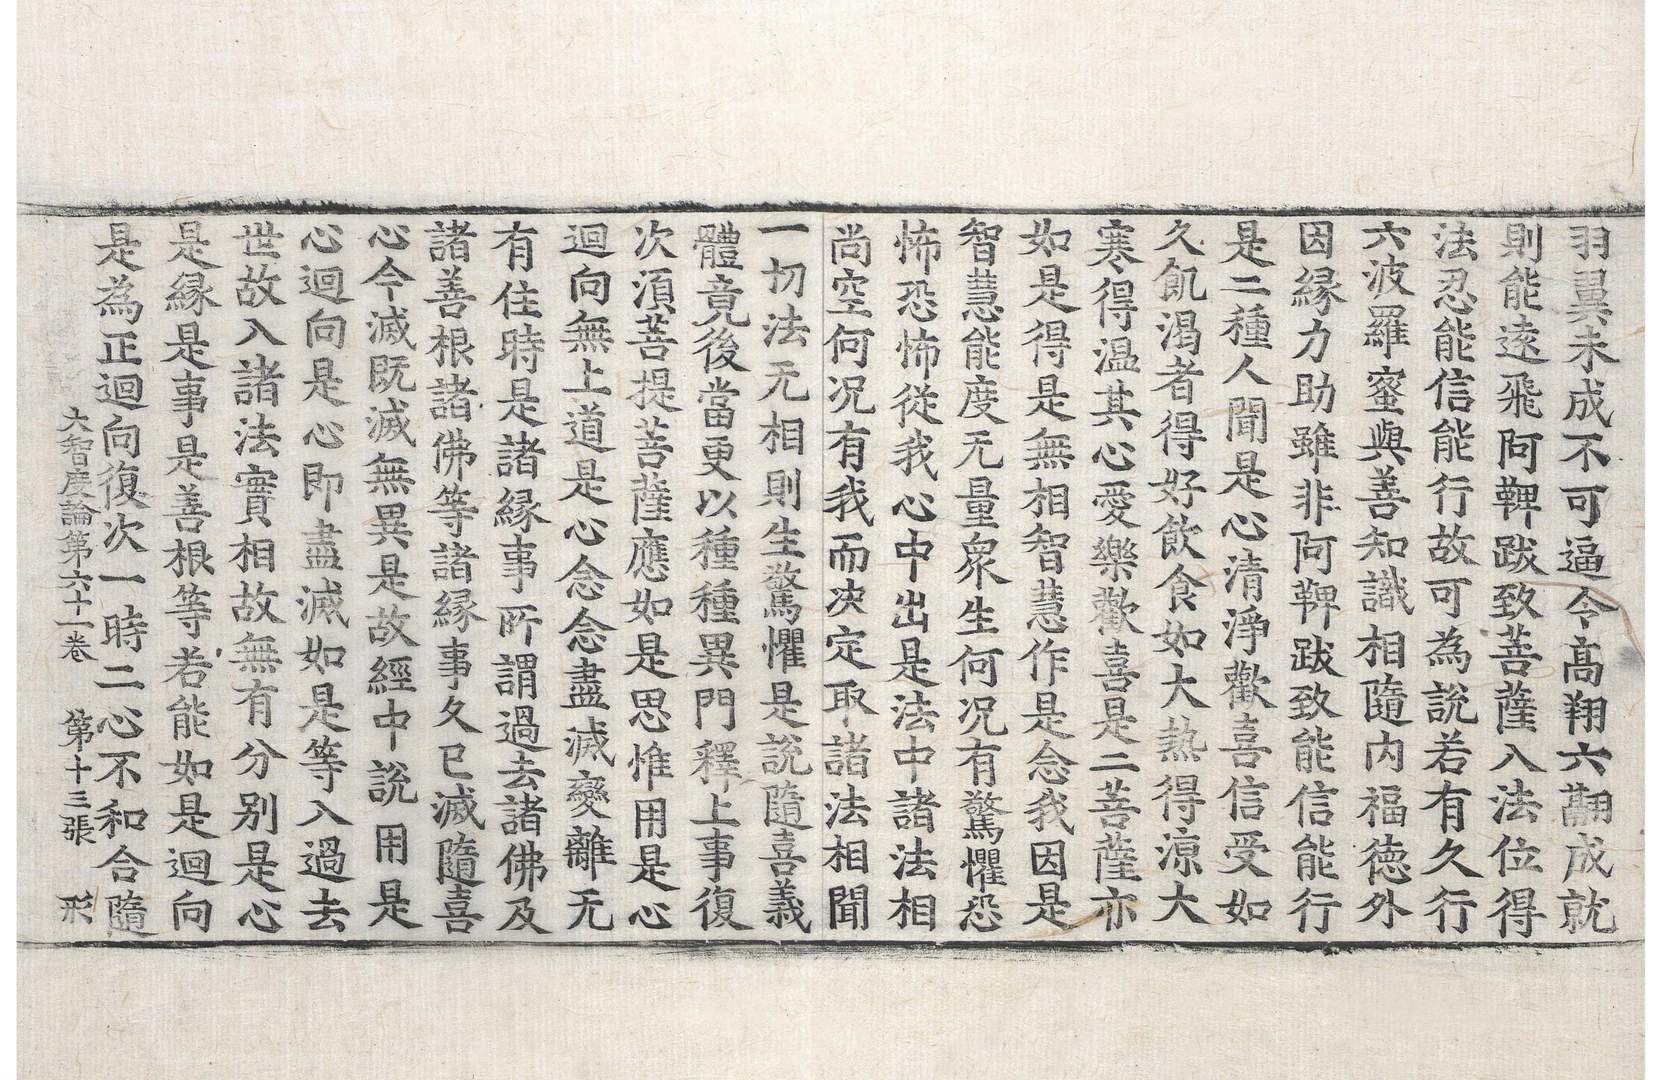 羽翼未成不可逼令高翔六翮成就
則能遠飛阿鞞跋致菩薩入法位得
法忍能信能行故可為說若有久行
六波羅蜜與善知識相隨內福德外
因緣力助雖非阿鞞跋致能信能行
是二種人聞是心清淨歡喜信受如
久飢渴者得好飲食如大熱得涼大
寒得溫其心愛樂歡喜是二菩薩亦
如是得是無相智慧作是念我因是
智慧能度无量衆生何况有驚懼恐
怖恐怖從我心中出是法中諸法相
尚空何况有我而决定取諸法相聞
一切法无相則生驚懼是說隨喜義
體竟後當更以種種異門釋上事復
次湏菩提菩薩應如是思惟用是心
迴向無上道是心念念盡滅變離无
有住時是諸緣事所謂過去諸佛及
諸善根諸佛等諸緣事久已滅隨喜
心今滅既滅無異是故經中說用是
心迴向是心即盡滅如是等入過去
世故入諸法實相故無有分别是心
是緣是事是善根等若能如是迴向
是為正迴向復次一時二心不和合隨
大智度論第六十一卷 第十三張 形